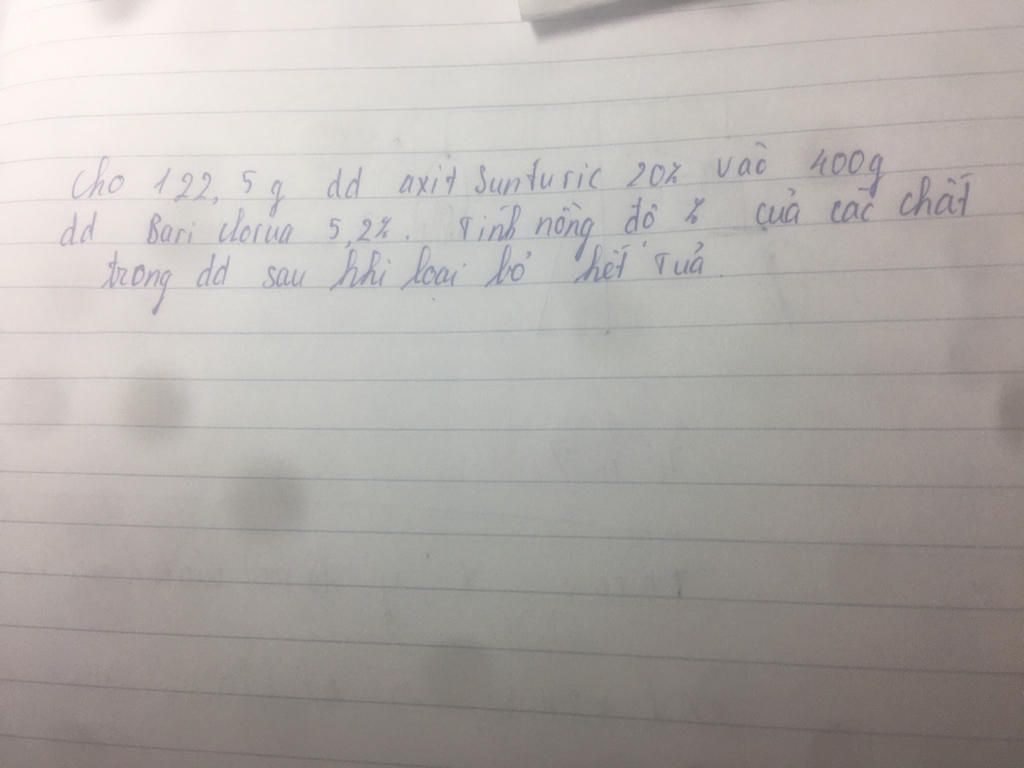 Cho 122,5g dd axit Sunfuric 20% vào 400g
dd Bari clorua 5,2%. Tính nồng độ % của các chất
trong dd sau khi loại bỏ hết tủa.